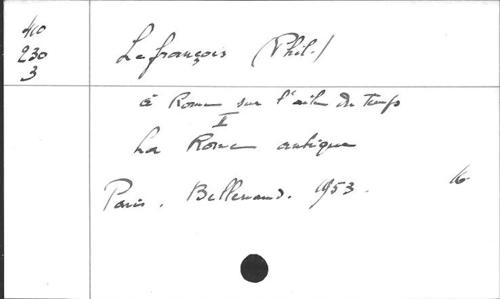 410
230
3
Lefrançois (Phil.)
à Rome sur l'aile du Temps
II
La Rome antique
Paris. Bellenand. 1953.
16